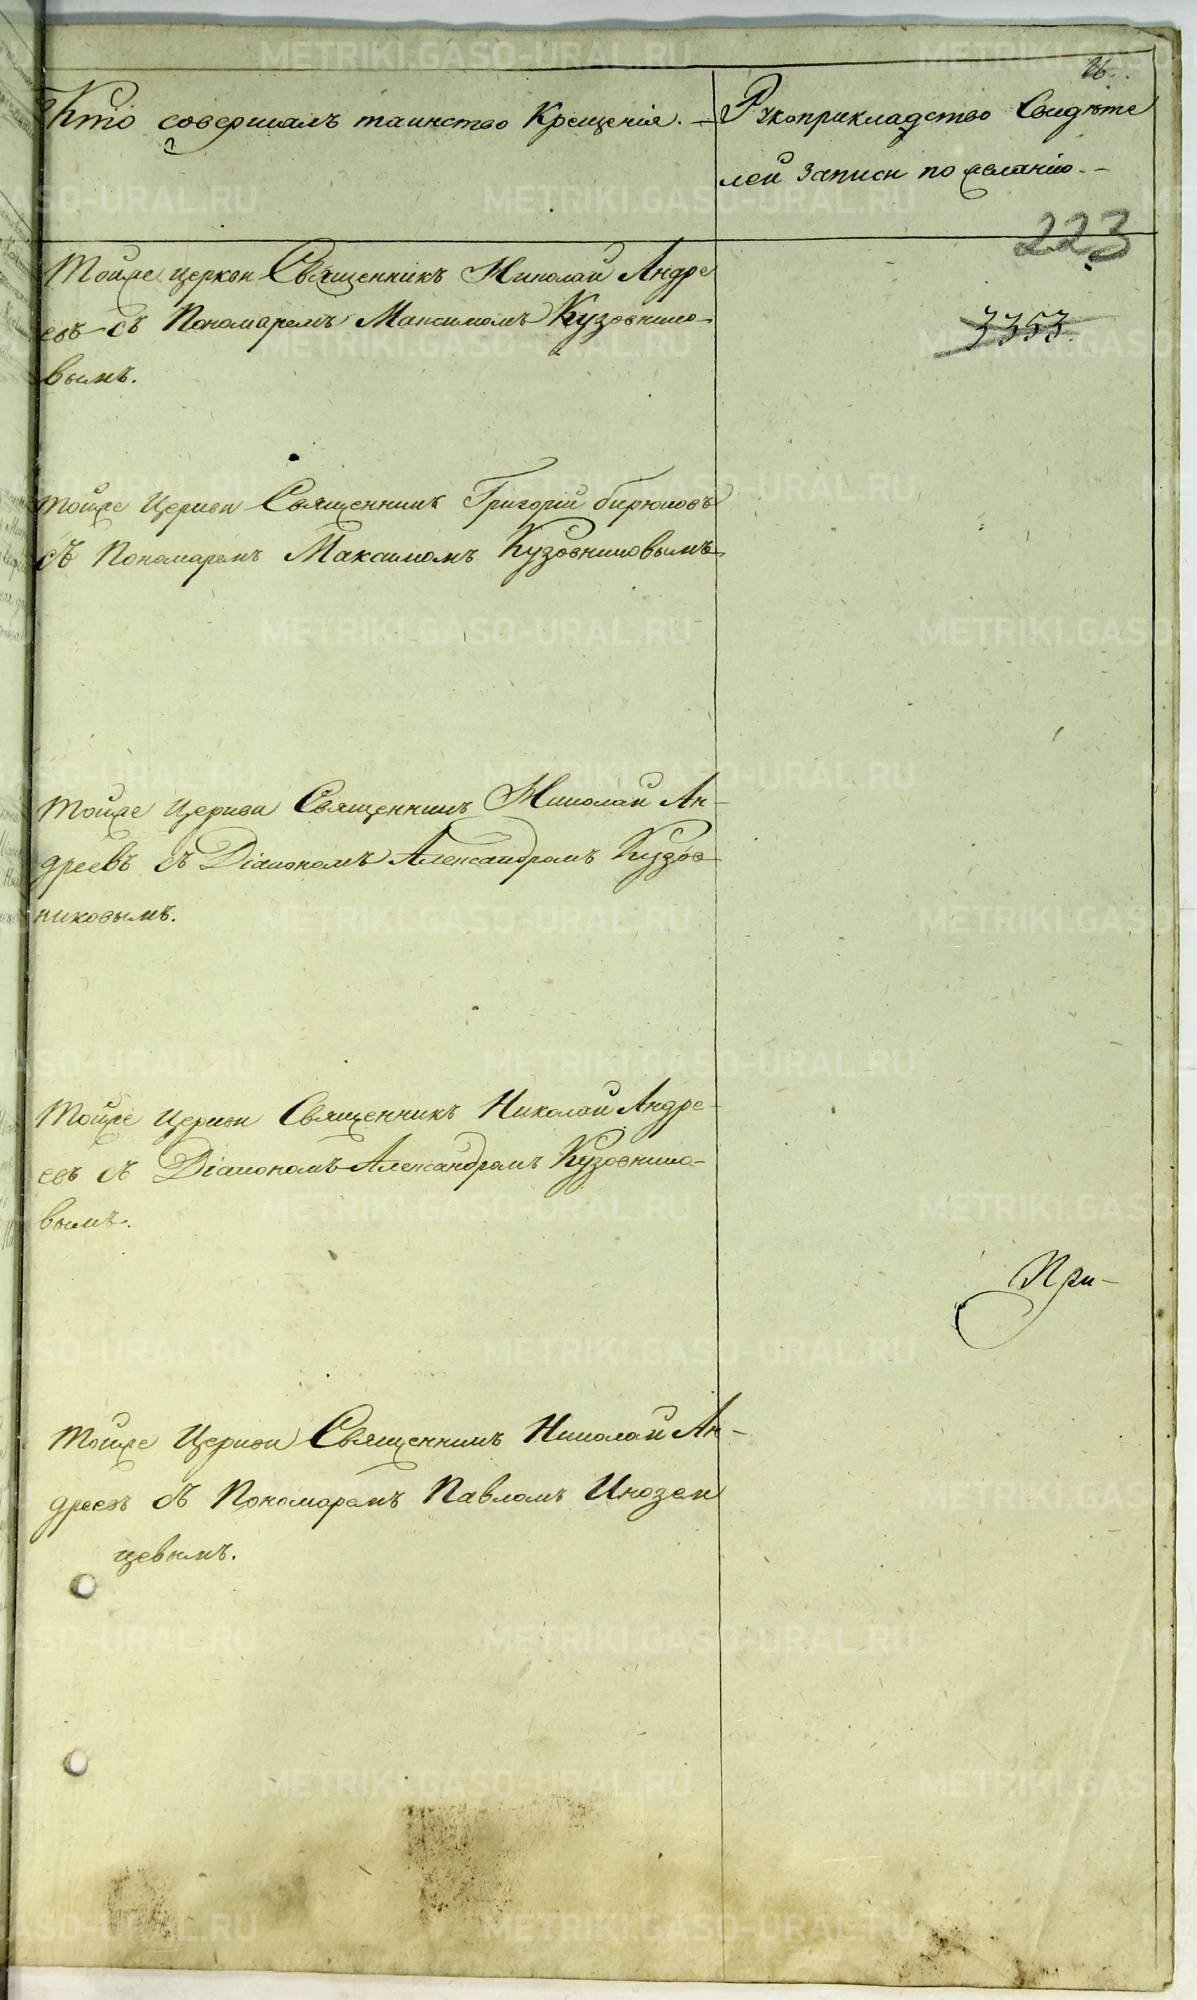 26.
Кто совершалъ таинство Крещенія. –
Рукоприкладство Свидѣте
лей записи по желанію. –
223
3353.
Тойже церкви Священникъ Николай Андре
евъ съ Пономаремъ Максимомъ Кузовнико-
вымъ.
Тойже Церкви Священникъ Григорій Бирюковъ
съ Пономаремъ Максимомъ Кузовниковымъ
Тойже Церкви Священникъ Николай Ан-
дреевъ съ Діакономъ Александромъ Кузов-
никовымъ.
Тойже Церкви Священникъ Николай Андре-
евъ съ Діакономъ Александромъ Кузовнико-
вымъ.
При-
Тойже Церкви Священникъ Николай Ан-
дреевъ съ Пономаремъ Павломъ Инозем
цевымъ.
METRIKI.GASO-URAL.RU